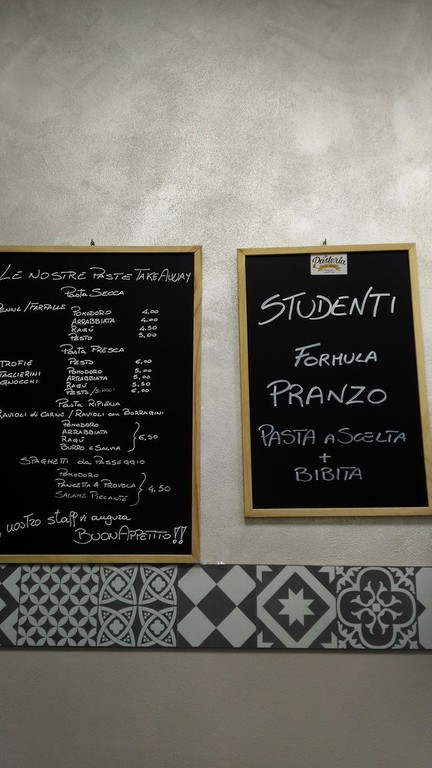 LE NOSTRE PASTE TAKEAWAY
Pasta Secca
PENNE/FARFALLE
POMODORO 4,00
ARRABBIATA 4,00
RAGÚ 4,50
PESTO 5,00
PASTA FRESCA
TROFIE PESTO 6,00
TAGLIERINI POMODORO 5,00
GNOCCHI ARRABBIATA 5,00
RAGÚ 5,50
PESTO 6,00
PASTA RIPIENA
RAVIOLI di CARNE / RAVIOLI con BORRAGINI
POMODORO
ARRABBIATA
RAGÚ
BURRO e SALVIA
6,50
SPAGHETTI da PASSEGGIO
POMODORO
PANCETTA & PROVOLA
SALAME PICCANTE
4,50
nostro staff vi augura
BUON APPETITO!!
Pasteria
STUDENTI
FORMULA
PRANZO
PASTA A SCELTA
+
BIBITA